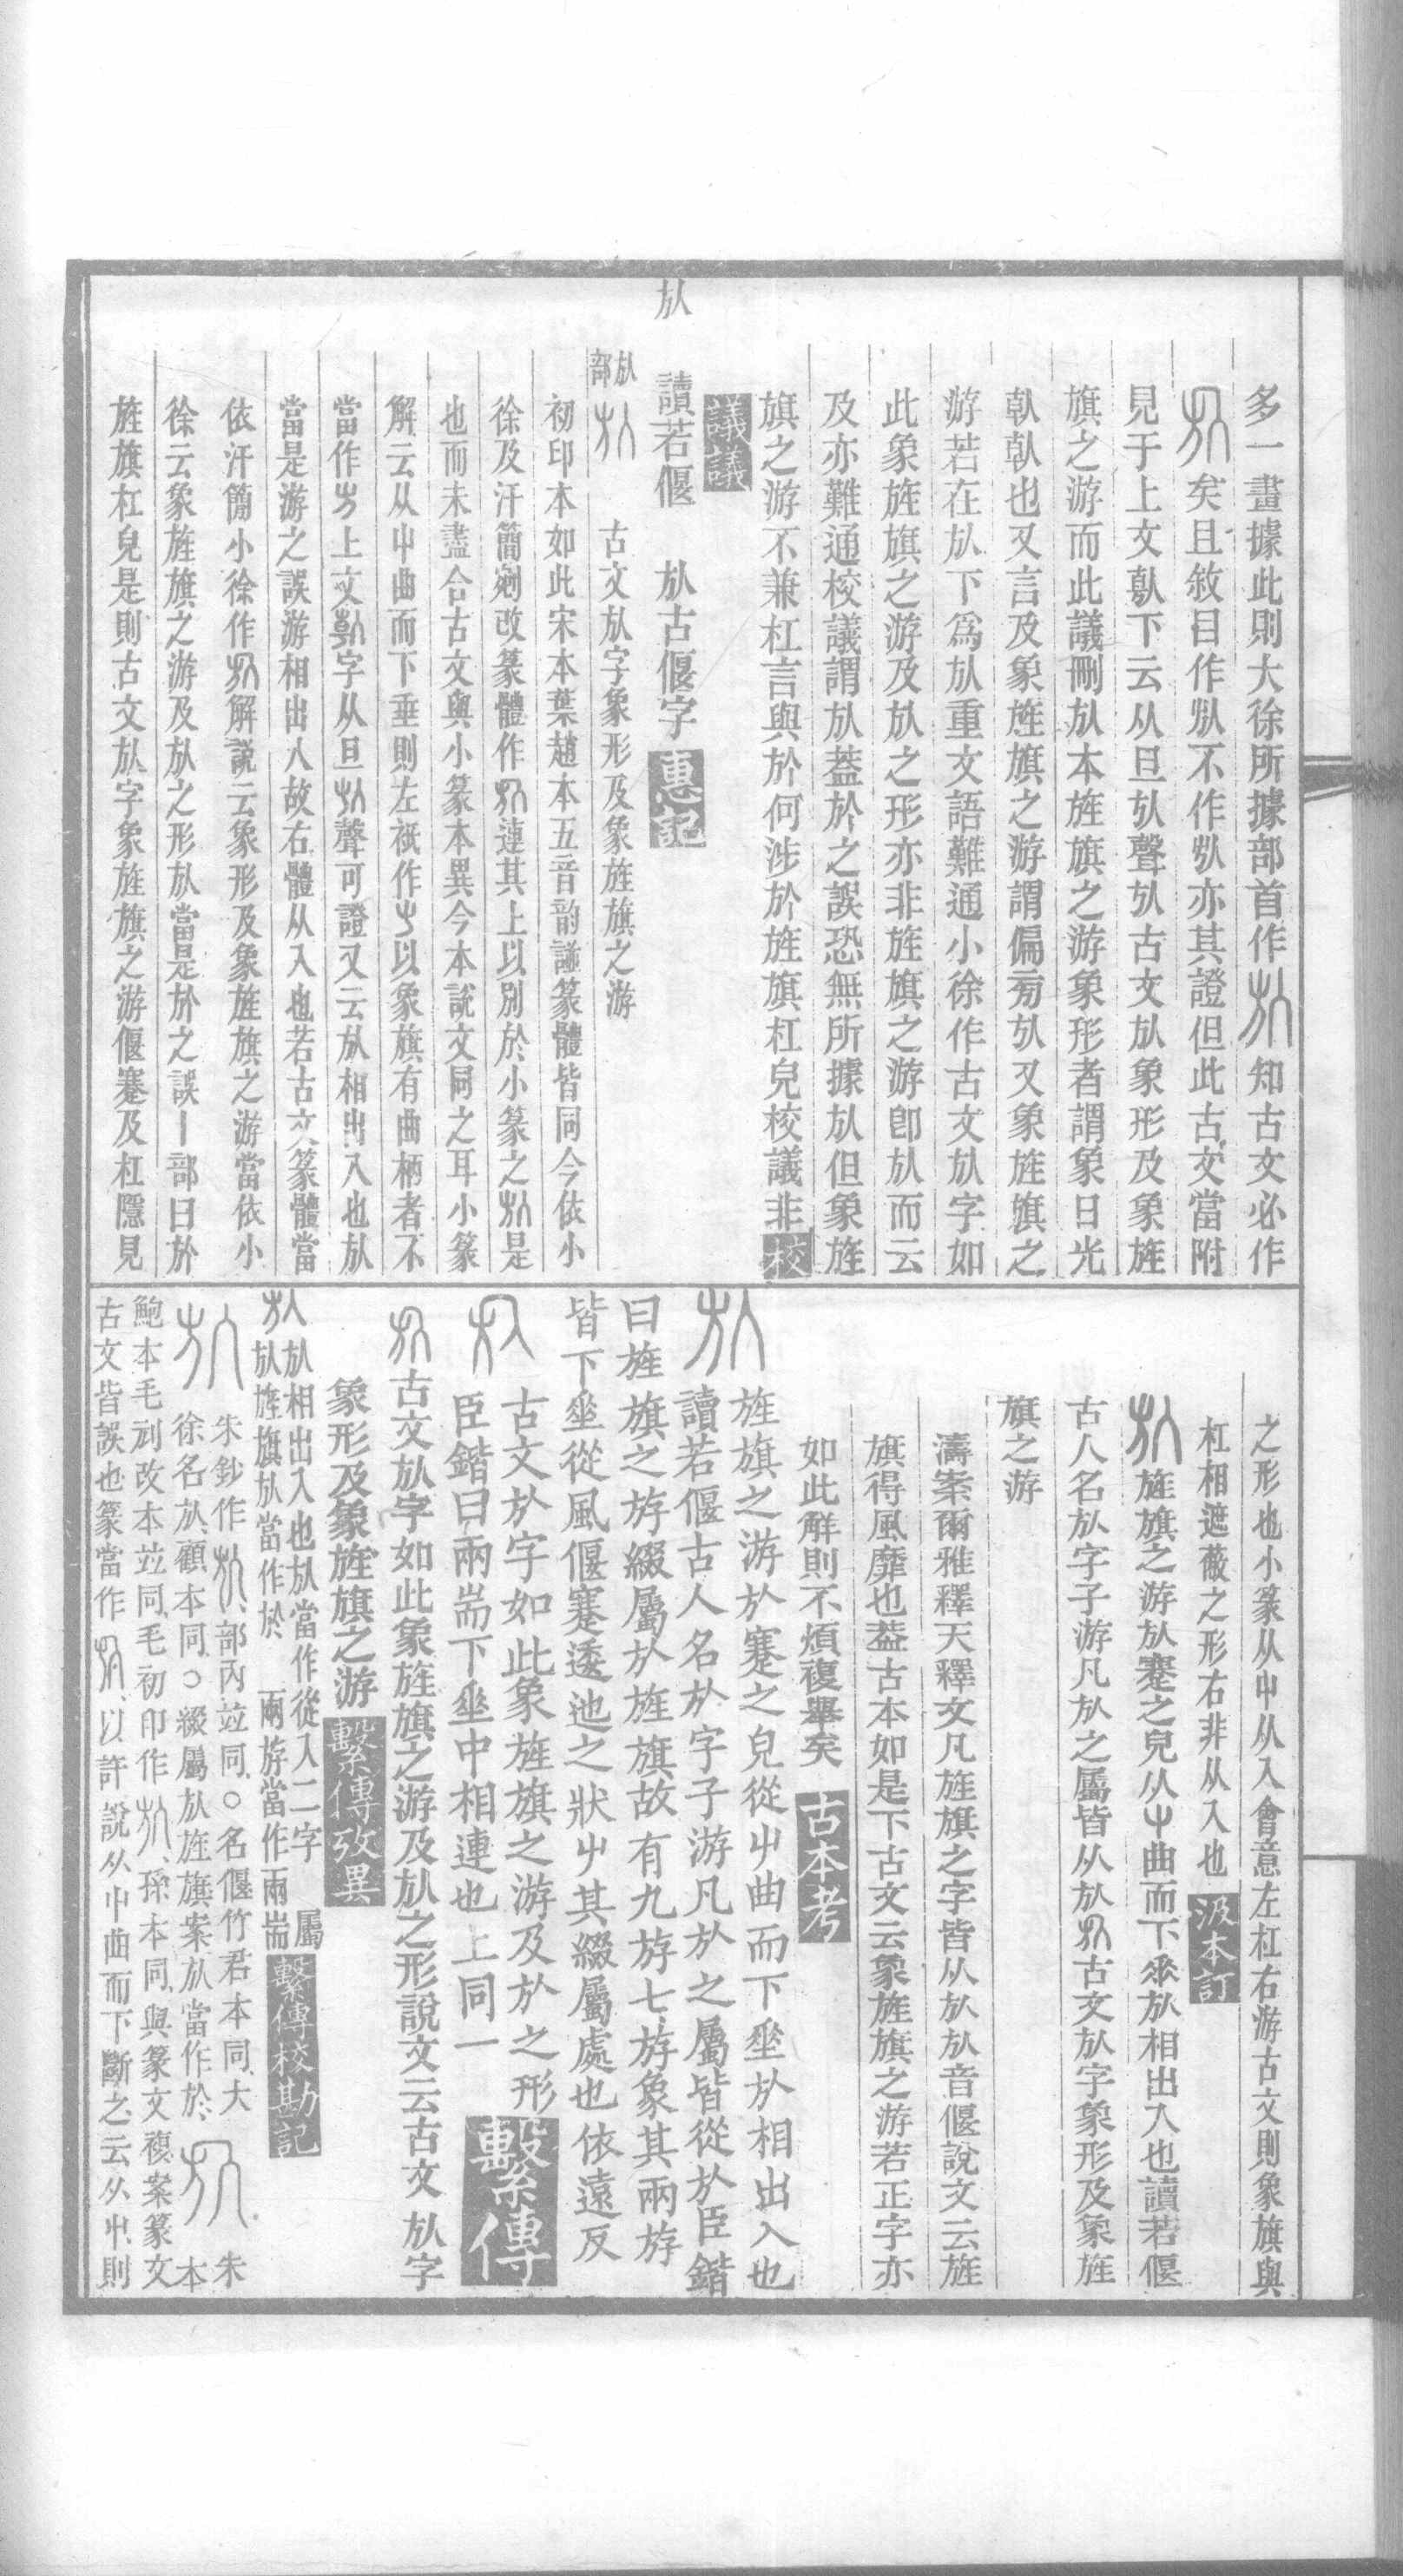 多一畫據此則大徐所據部首作㫃知古文必作
㫃矣且敘目作㫃不作㫃亦其證但此古文當附
見于上文倝下云从旦㫃聲㫃古文㫃象形及象旌
旗之游而此議刪㫃本旌旗之游象形者謂象日光
倝倝也又言及象旌旗之游謂偏旁㫃又象旌旗之
游若在㫃下爲㫃重文語難通小徐作古文㫃字如
此象旌旗之游及㫃之形亦非旌旗之游卽㫃而云
及亦難通校議謂㫃葢於之誤恐無所據㫃但象旌
旗之游不兼杠言與於何涉於旌旗杠皃校議非校
議議
㫃
讀若偃 㫃古偃字惠記
㫃部㫃 古文㫃字象形及象旌旗之游
初印本如此宋本葉趙本五音韵譜篆體皆同今依小
徐及汗簡剜改篆體作㫃連其上以別於小篆之㫃是
也而未盡合古文與小篆本異今本說文同之耳小篆
解云从屮曲而下垂則左祇作以象旗有曲柄者不
當作上文倝字从旦㫃聲可證又云㫃相出入也㫃
當是游之誤游相出入故右體从入也若古文篆體當
依汗簡小徐作㫃解說云象形及象旌旗之游當依小
徐云象旌旗之游及㫃之形㫃當是於之誤丨部曰於
旌旗杠皃是則古文㫃字象旌旗之游偃蹇及杠隱見
之形也小篆从屮从入會意左杠右游古文則象旗與
杠相遮蔽之形右非从入也汲本訂
㫃旌旗之游㫃蹇之皃从屮曲而下垂㫃相出入也讀若偃
古人名㫃字子游凡㫃之屬皆从㫃㫃古文㫃字象形及象旌
旗之游
濤案爾雅釋天釋文凡旌旗之字皆从㫃㫃音偃說文云旌
旗得風靡也葢古本如是下古文云象旌旗之游若正字亦
如此解則不煩複舉矣古本考
㫃旌旗之游於蹇之皃從屮曲而下垂於相出入也
讀若偃古人名於字子游凡於之屬皆從於臣鍇
曰旌旗之斿綴屬於旌旗故有九斿七斿象其兩斿
皆下垂從風偃蹇逶迤之狀屮其綴屬處也依遠反
㫃古文於字如此象旌旗之游及於之形
臣鍇曰兩耑下垂中相連也上同一繫傳
㫃古文㫃字如此象旌旗之游及㫃之形說文云古文㫃字
象形及象旌旗之游繫傳攷異
㫃㫃相出入也㫃當作從入二字 屬
㫃旌旗㫃當作於 兩斿當作兩耑繫傳校勘記
㫃朱鈔作㫃部內竝同○名偃竹君本同大
徐名㫃顧本同○綴屬㫃旌旗案㫃當作於㫃朱本
鮑本毛剜改本竝同毛初印作㫃孫本同與篆文複案篆文
古文皆誤也篆當作以許說从屮曲而下斷之云从屮則